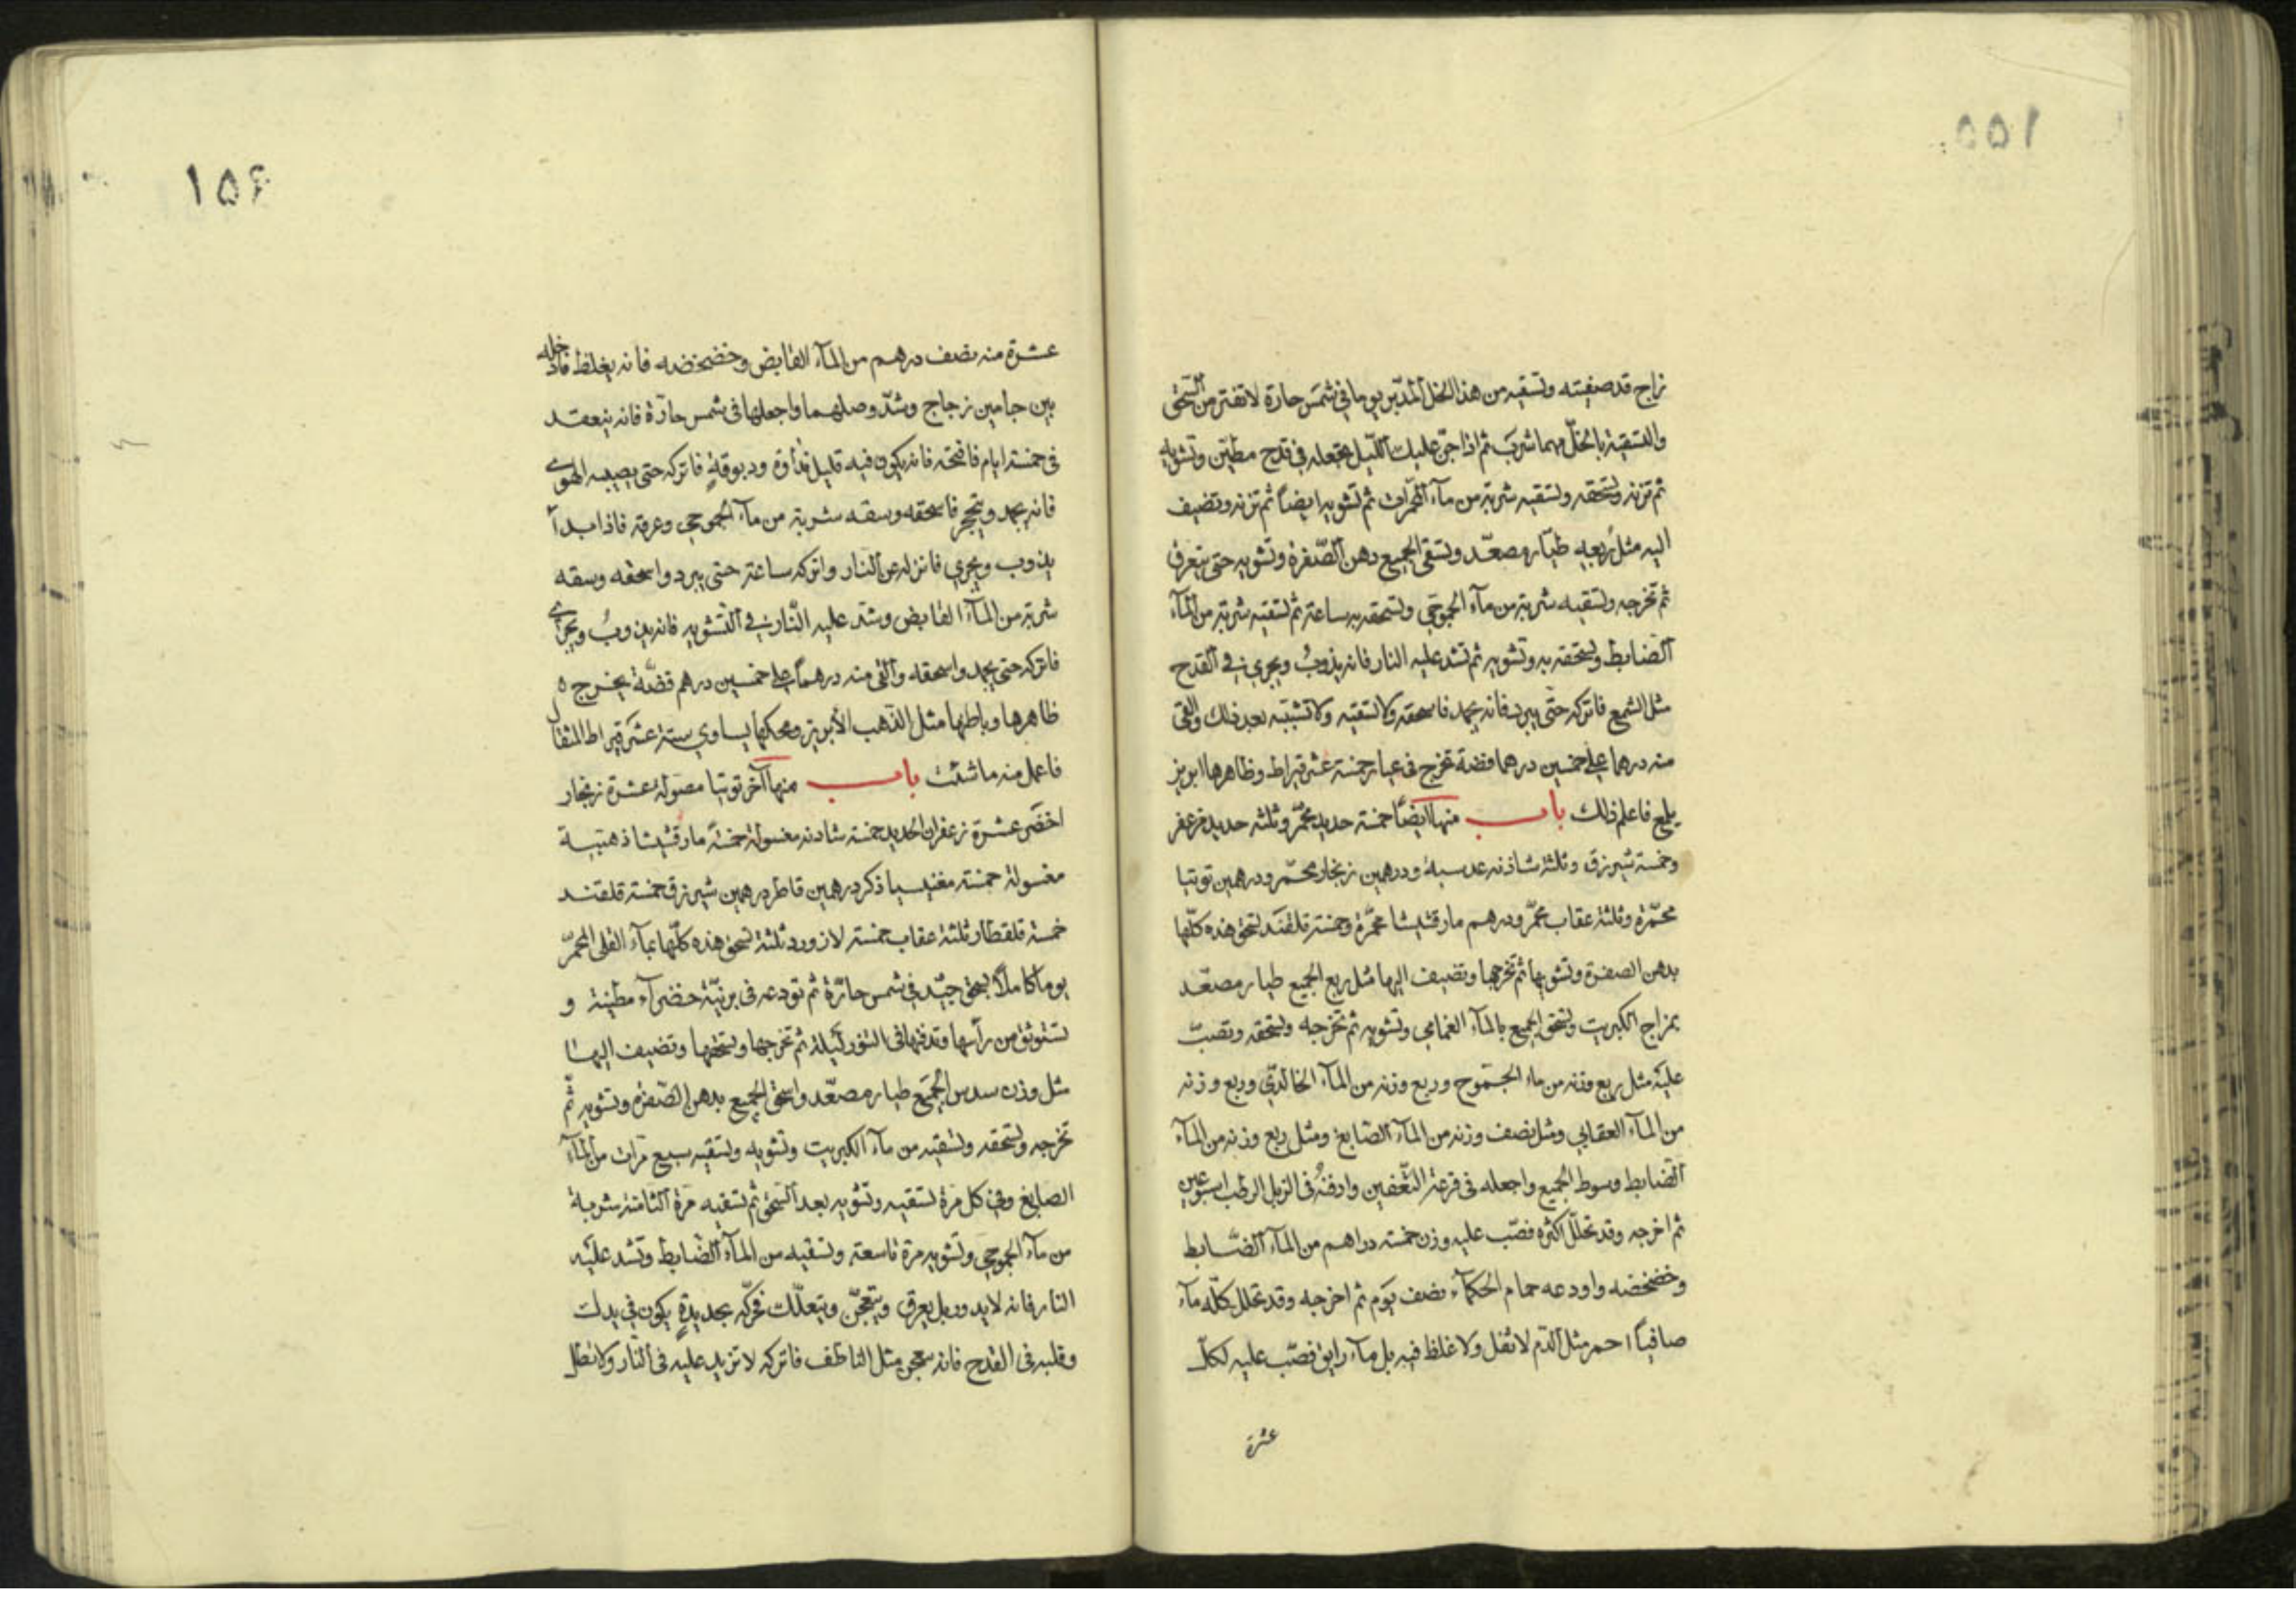 ١٥٥
زاج قد صفيته وتسقيه من هذا الخل المدبر يوما في شمس حارة لا تفتر من السحق
والتسقية بالخل مهما شرب ثم اذا جن عليك الليل تجعله في قدح مطين وتشويه
ثم تزنه وتسحقه وتسقيه شربة من ماء ثم تشويه ايضاً ثم تزنه وتضيف
اليه مثل ربعه طيار مصعّد وتسقي الجميع دهن الصّفرة وتشويه حتى يتعرق
ثم تخرجه وتسقيه شربة من ماء الجموحي وتسحقه به ساعة ثم تسقيه شربة من المآء
الضابط وتسحقه به وتشويه ثم تشد عليه النار فانه يذوبُ ويجري في القدح
مثل الشمع فاتركه حتّى يبرد فانه يجمد فاسحقه ولا تسقيه ولا تشبّبه بعد ذلك والقي
منه درهما على خمسين درهما فضة تخرج في عيار خمسة عشر قيراط وظاهرها ابريز
يلمع فاعلم ذلك باب منها ايضاً خمسة حديد محمّر وثلثه حديد مزعفر
وخمسة شيرزق وثلثة شاذنه عدسية ودرهمين زنجار محمّر ودرهمين توتيا
محمّرة وثلثة عقاب محمّر ودرهم مارقشيشا محمّرة وخمسة قلقند تسحق هذه كلّها
بدهن الصفرة وتشويها ثم تخرجها وتضيف اليها مثل ربع الجميع طيار مصعّد
بمزاج الكبريت وتسحق الجميع بالمآء الغمامي وتشويه ثم تخرجه وتسحقه وتصبّ
عليه مثل ربع وزنه من ماء الجموح وربع وزنه من المآء الخالدي وربع وزنه
من المآء العقابي ومثل نصف وزنه من المآء الصّابغ ومثل ربع وزنه من المآء
الضابط وسوط الجميع واجعله في قرعة التّعفين وادفنهُ في الزبل الرطب اسبوعين
ثم اخرجه وقد تحلّل اكثره فصّب عليه وزن خمسة دراهم من المآء الضّابط
وخضخضه واودعه حمام الحكمآء نصف يوم ثم اخرجه وقد تحلل كلّه مآء
صافياً احمر مثل الدّم لا ثفل ولا غلظ فيه بل مآء رايق فصّب عليه لكل
عشرة
١٥٤
عشرة منه نصف درهم من المآء القابض وخضخضه فانه يغلظ فادخله
بين جامين زجاج وشدّ وصلهما واجعلها في شمس حارّة فانه ينعقد
في خمسة ايام فافتحه فانه يكون فيه قليل نداوة ودبوقةٍ فاتركه حتى يصيبه الهوى
فانه يجمد ويتحجر فاسحقه وسقه شربة من ماء الجموحي وعرقه فاذا بدأ
يذوب ويجري فانزله عن النار واتركه ساعة حتى يبرد واسحقه وسقه
شربة من المآء القابض وشد عليه النّار في التشويه فانه يذوبُ ويجري
فاتركه حتى يجمد واسحقه والقي منه درهماً على خمسين درهم فضّة يخرج ه
ظاهرها وباطنها مثل الذهب الأبريز ومحكها يساوي ستة عشر قيراط المثقال
فاعمل منه ما شئت باب منها آخر توتيا مصولة عشرة زنجار
اخضر عشرة زعفران الحديد خمسة شادنه مغسولة خمسةً مارقشيشا ذهبية
مغسولة خمسة مغنيسيا ذكر درهمين قاطر درهمين شيرزق خمسة قلقند
خمسة قلقطار ثلثة عقاب خمسة لازورد ثلثة تسحق هذه كلّها بمآء القلي المحمّر
يوماً كاملاً بسحق جيّد في شمس حارّة ثم تودعه في برنيّة خضرآء مطينة و
تستوثق من رأسها وتدفنها في التنور ليلة ثم تخرجها وتسحقها وتضيف اليها
مثل وزن سدس الجميع طيار مصعّد واسحق الجميع بدهن الصّفرة وتشويه ثم
تخرجه وتسحقه وتسقيه من مآء الكبريت وتشويه وتسقيه سبع مرّات من المآء
الصابغ وفي كل مرّة تسقيه وتشويه بعد السّحق ثم تسقيه مرّة الثامنة شربة
من مآء الجموحي وتشويه مرة تاسعة وتسقيه من المآء الضّابط وتشد عليه
النار فانه لا يدور بل يعرق ويتعجّن ويتعلّك فحرّكه بحديدةٍ يكون في يدك
وقلبه في القدح فانه يعجن مثل الناطف فاتركه لا تزيد عليه في النّار ولا تطل